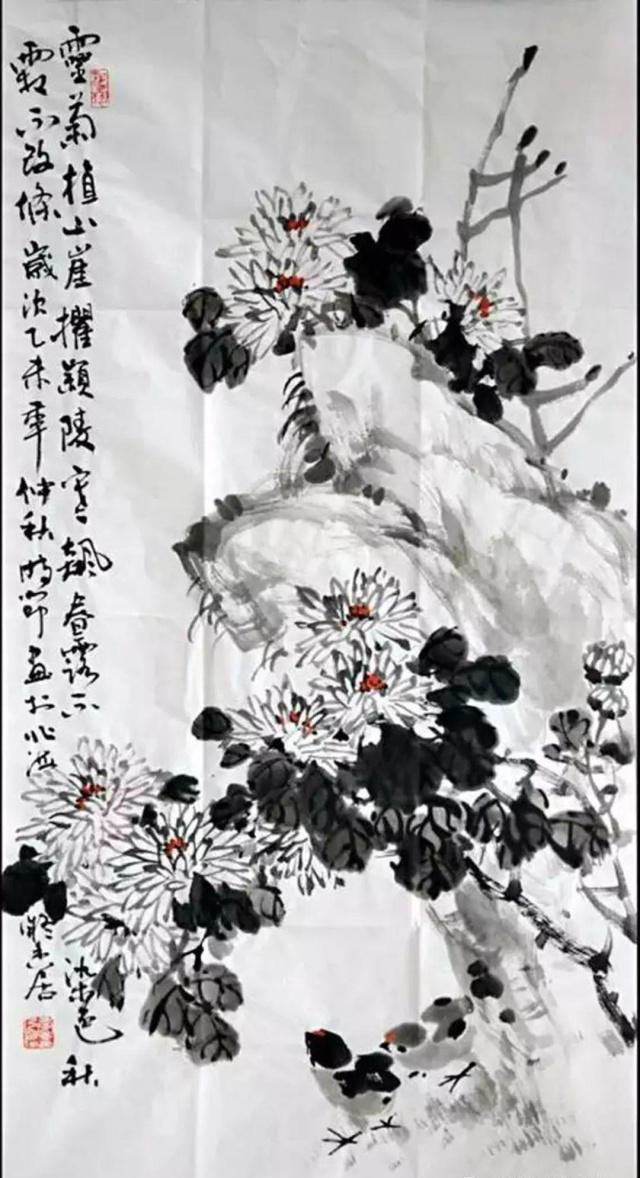 靈菊植山崖擢穎陵寒飆春露不染色秋
霜不改條歲次乙未年仲秋時節畫於北海居